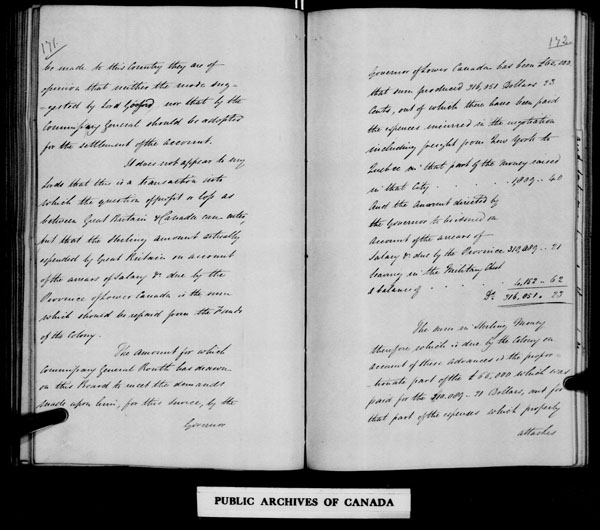 171.
be made to this Country they are of
opinion that neither the mode sug-
-gested by Lord Gosford nor that by the
Commissary General should be adopted
for the settlement of the account.
It does not appear to my
Lords that this is a transaction into
which the question of profit or loss as
between Great Britain & Canada can enter,
but that the sterling amount actually
expended by Great Britain on account
of the arrears of Salary &c due by the
Province of Lower Canada is the sum
which should be repaid from the Funds
of the Colony.
The amount for which
Commissary General Routh has drawn
on this Board to meet the demands
made upon him, for this service, by the
Governor
172
Governor of Lower Canada has been £65,000
that sum produced 316,051 Dollars 23
Cents, out of which there have been paid
the expences incurred in the negotiation
including freight from New York to
Quebec on that part of the money raised
in that City
And the amount directed by
the Governor to be issued on
account of the arrears of
Salary &c due by the Province
leaving in the Military Chest
a balance of 4,152 .. 62
Drs 316,051 . 23
The sum in Sterling Money
therefore which is due by the Colony on
account of these advances is the propor-
-tionate part of the £65,000 which was
paid for the Dollars, and for
that part of the expences which properly
attaches
PUBLIC ARCHIVES OF CANADA